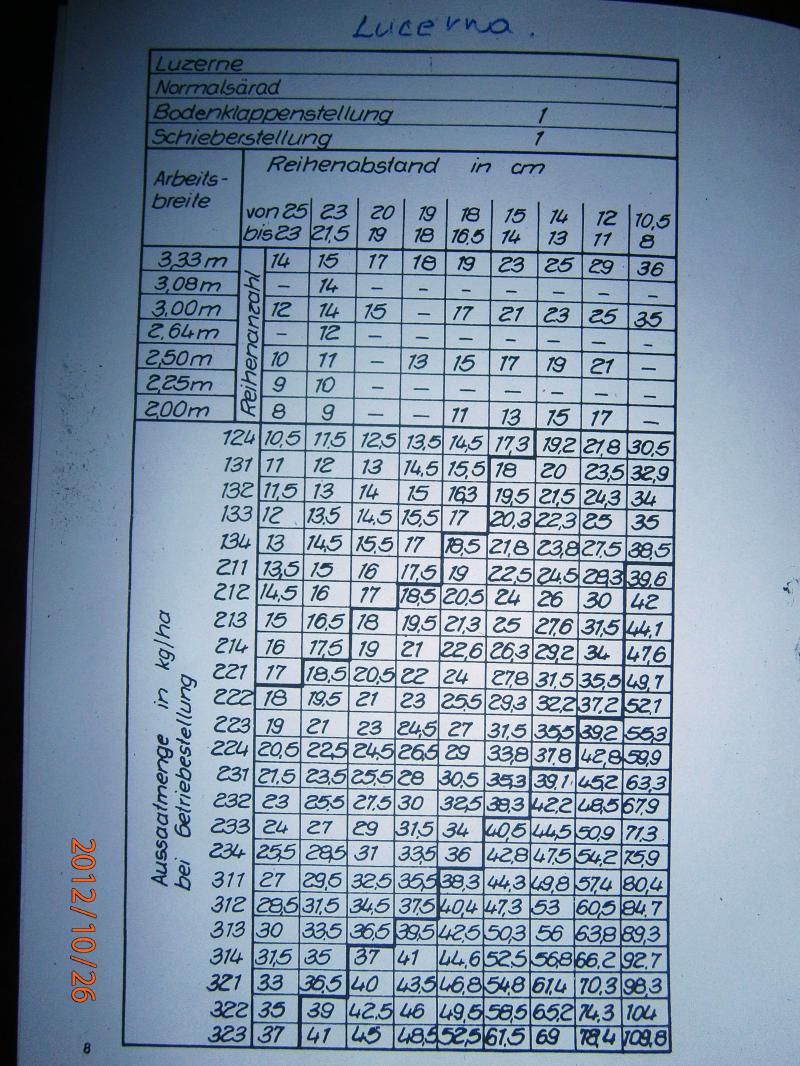 Lucerna.
Luzerne
Normalsärad
Bodenklappenstellung 1
Schieberstellung 1
Arbeits- Reihenabstand in cm
breite
von 25 23 20 19 18 15 14 12 10,5
bis 23 21,5 19 18 16,5 14 13 11 8
Reihenanzahl
3,33m 14 15 17 18 19 23 25 29 36
3,08m – 14 – – – – – – –
3,00m 12 14 15 – 17 21 23 25 35
2,64m – 12 – – – – – – –
2,50m 10 11 – 13 15 17 19 21 –
2,25m 9 10 – – – – – – –
2,00m 8 9 – – 11 13 15 17 –
Aussaatmenge in kg/ha
bei Getriebestellung
124 10,5 11,5 12,5 13,5 14,5 17,3 19,2 21,8 30,5
131 11 12 13 14,5 15,5 18 20 23,5 32,9
132 11,5 13 14 15 163 19,5 21,5 24,3 34
133 12 13,5 14,5 15,5 17 20,3 22,3 25 35
134 13 14,5 15,5 17 18,5 21,8 23,8 27,5 38,5
211 13,5 15 16 17,5 19 22,5 24,5 28,3 39,6
212 14,5 16 17 18,5 20,5 24 26 30 42
213 15 16,5 18 19,5 21,3 25 27,6 31,5 44,1
214 16 17,5 19 21 22,6 26,3 29,2 34 47,6
221 17 18,5 20,5 22 24 27,8 31,5 35,5 49,7
222 18 19,5 21 23 25,5 29,3 32,2 37,2 52,1
223 19 21 23 24,5 27 31,5 35,5 39,2 55,3
224 20,5 22,5 24,5 26,5 29 33,8 37,8 42,8 59,9
231 21,5 23,5 25,5 28 30,5 35,3 39,1 45,2 63,3
232 23 25,5 27,5 30 32,5 38,3 42,2 48,5 67,9
233 24 27 29 31,5 34 40,5 44,5 50,9 71,3
234 25,5 28,5 31 33,5 36 42,8 47,5 54,2 75,9
311 27 29,5 32,5 35,5 38,3 44,3 49,8 57,4 80,4
312 28,5 31,5 34,5 37,5 40,4 47,3 53 60,5 84,7
313 30 33,5 36,5 39,5 42,5 50,3 56 63,8 89,3
314 31,5 35 37 41 44,6 52,5 56,8 66,2 92,7
321 33 36,5 40 43,5 46,8 54,8 61,4 70,3 98,3
322 35 39 42,5 46 49,5 58,5 65,2 74,3 104
323 37 41 45 48,5 52,5 61,5 69 78,4 109,8
8
2012/10/26